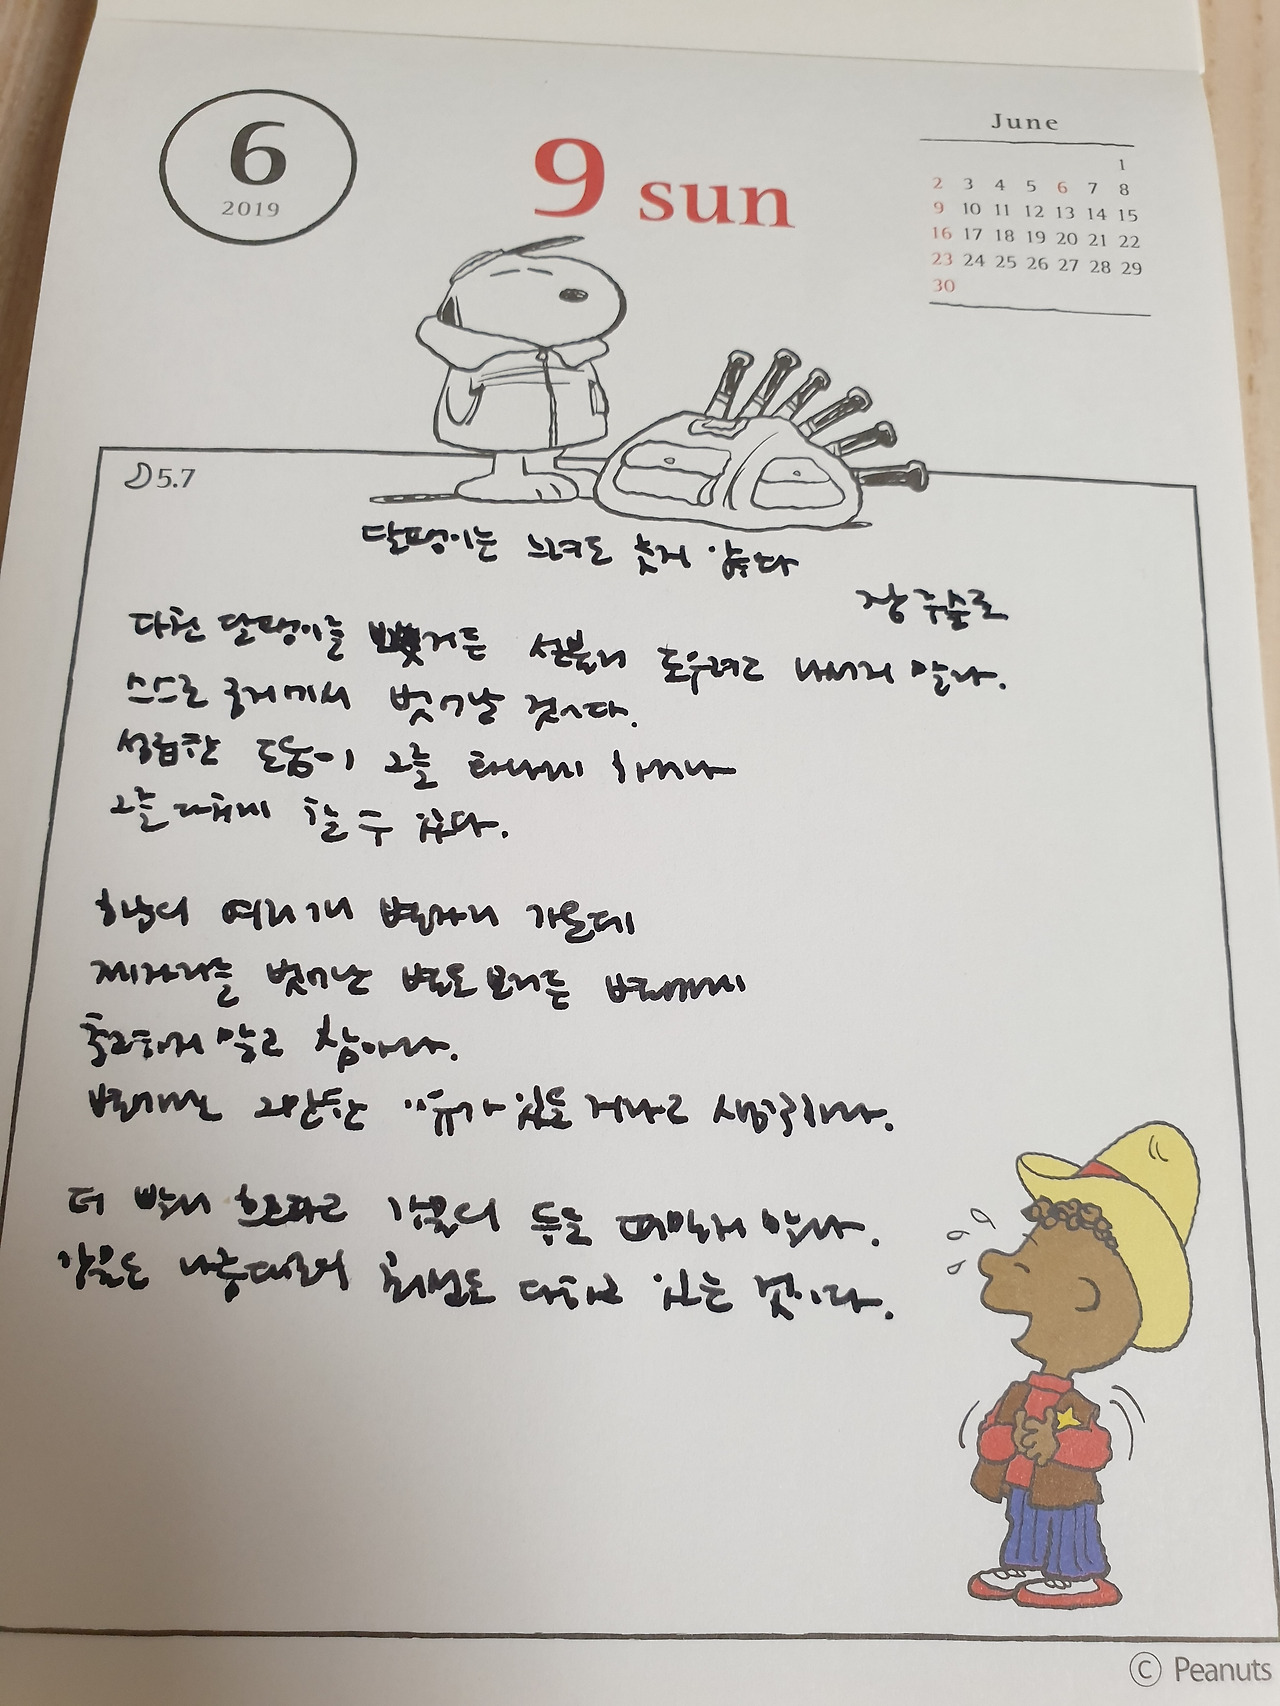 6
2019
9 sun
June
1
2 3 4 5 6 7 8
9 10 11 12 13 14 15
16 17 18 19 20 21 22
23 24 25 26 27 28 29
30
5.7
달팽이는 느려도 늦지 않다
장 주슬로
다친 달팽이를 보거든 섣불리 도우려고 나서지 말라.
스스로 궁지에서 벗어날 것이다.
성급한 도움이 그를 화나게 하거나
그를 다치게 할 수 있다.
하늘의 여러 개 별자리 가운데
제자리를 벗어난 별을 보거든 별에게
충고하지 말고 참아라.
별에겐 그만한 이유가 있을 거라고 생각하라.
더 빨리 흐르라고 강물의 등을 떠밀지 말라.
강물은 나름대로 최선을 다하고 있는 것이다.
© Peanuts